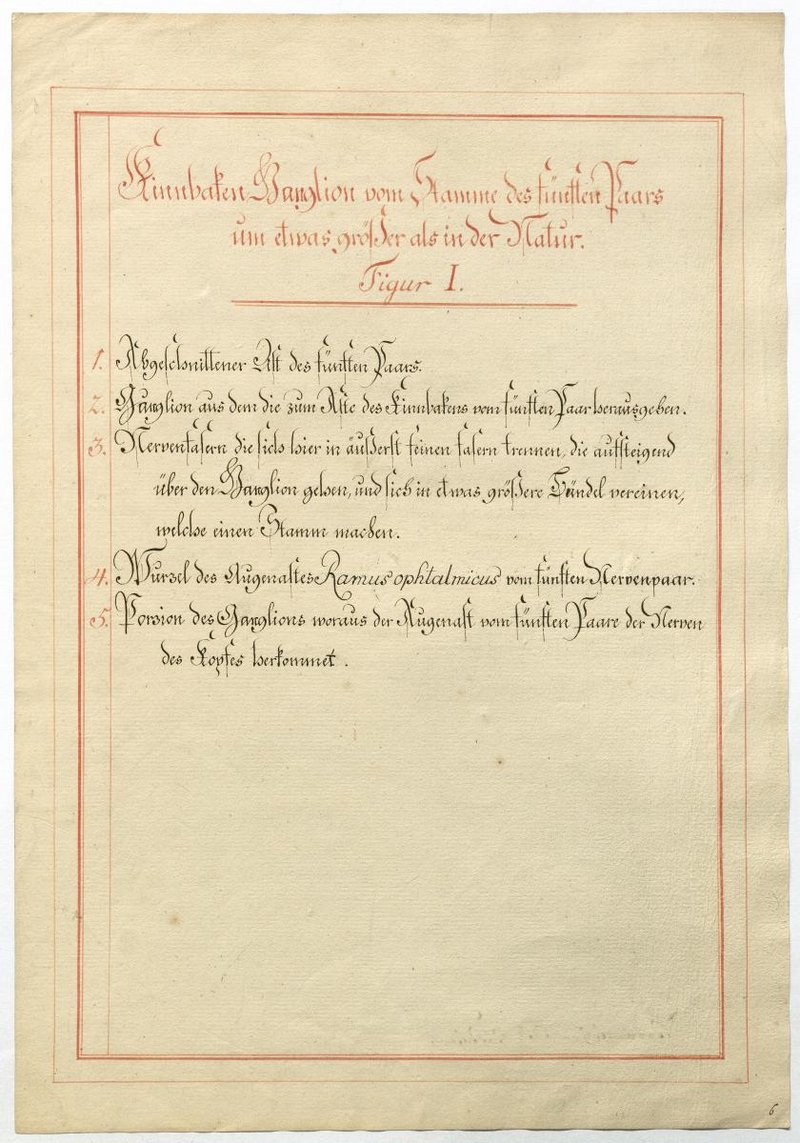 Kinnbaken Ganglion vom Stamme des fünften Paars
um etwas größer als in der Natur.
Figur I.
1. Abgeschnittener Ast des fünften Paars.
2. Ganglion aus dem die zum Aste des Kinnbakens vom fünften Paar herausgehen.
3. Nervenfasern die sich hier in äußerst feinen fasern trennen, die aufsteigend
über den Ganglion gehen, und sich in etwas größere Bündel vereinen,
welche einen Stamm machen.
4. Wurzel des Augenastes Ramus ophtalmicus vom fünften Nervenpaar.
5. Porzion des Ganglions woraus der Augenast vom fünften Paare der Nerven
des Kopfes herkommet.
6